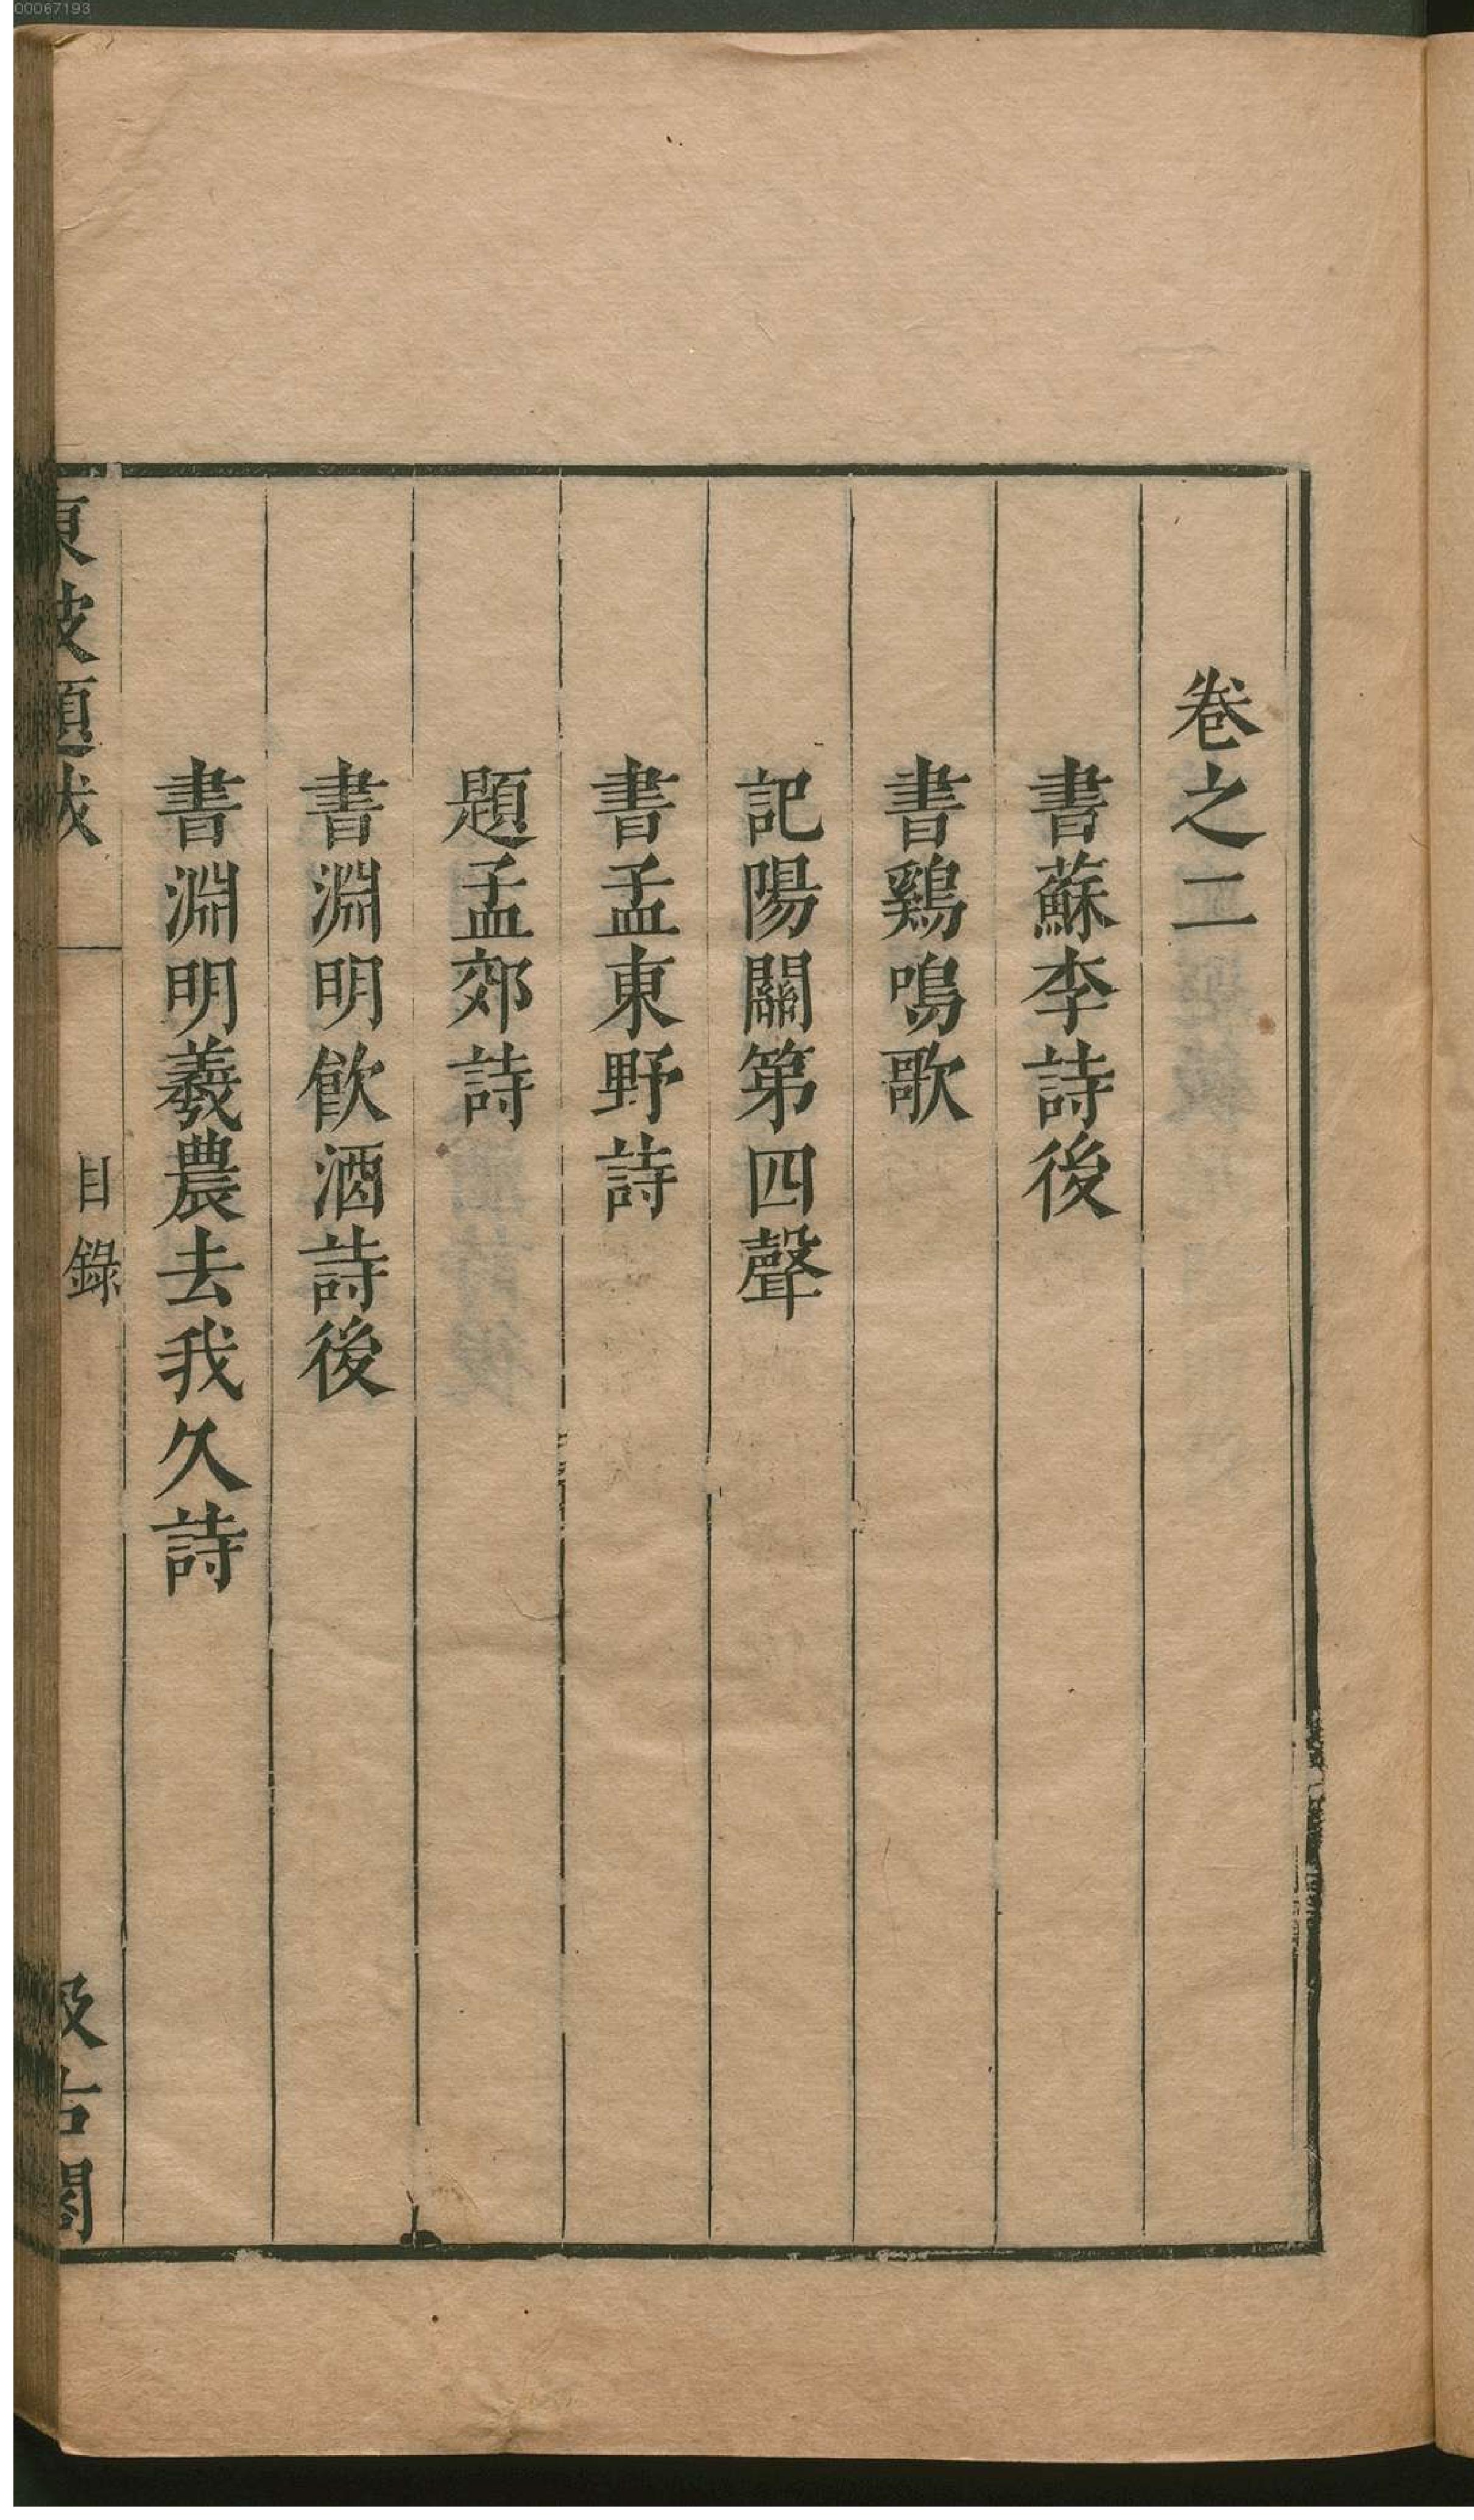 00067193
卷之二
書蘇李詩後
書鷄鳴歌
記陽關第四聲
書孟東野詩
題孟郊詩
書淵明飮酒詩後
書淵明羲農去我久詩
東坡題跋
目錄
汲古閣